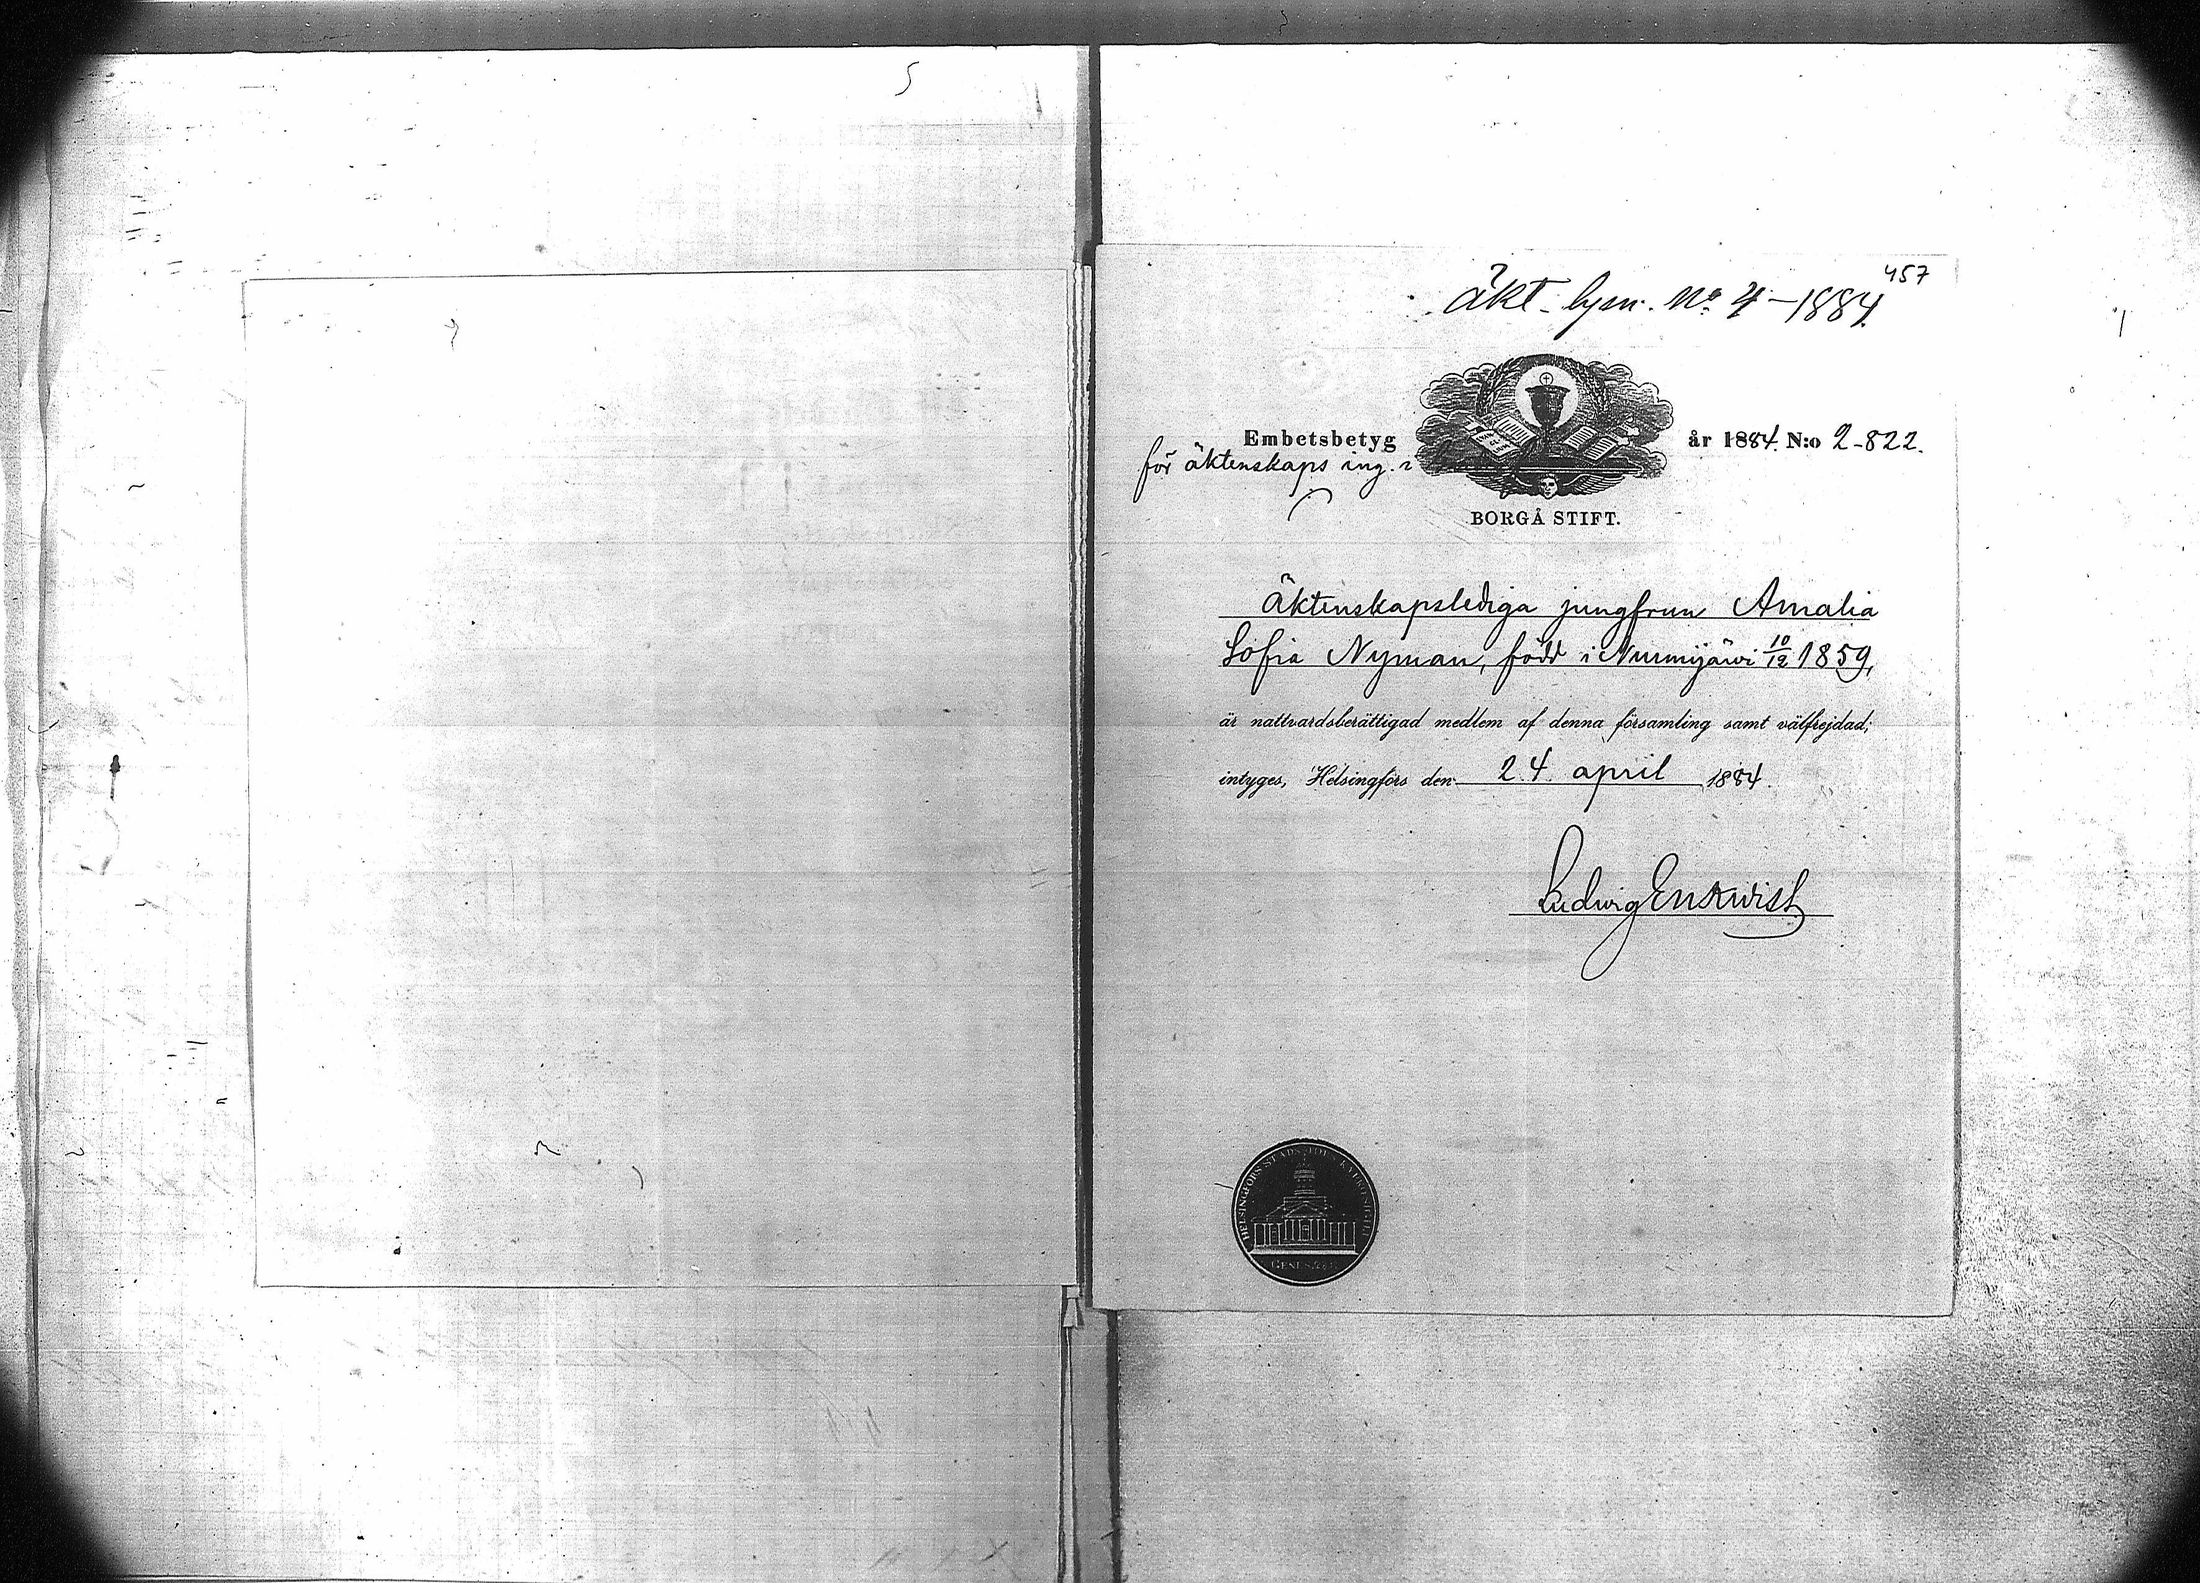 457
Äkt. lysn. No 4 – 1884.
Embetsbetyg
för äktenskaps ing.
år 1884. N:o 2-822.
BORGÅ STIFT.
Äktenskapslediga jungfrun Amalia
Sofia Nyman, född i Nurmijärvi 10/12 1859,
är nattvardsberättigad medlem af denna församling samt välfrejdad;
intyges, Helsingfors den 24 april 1884.
Ludvig Enkvist
HELSINGFORS STADS